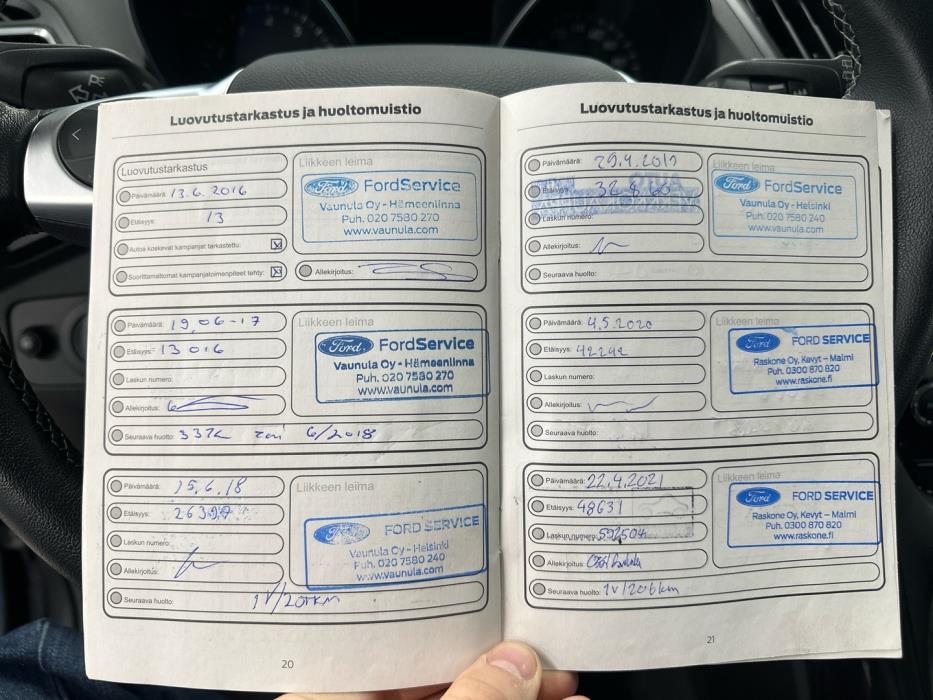 Luovutustarkastus ja huoltomuistio
Luovutustarkastus
Päivämäärä: 13.6.2016
Etäisyys: 13
Autoa koskevat kampanjat tarkastettu: X
Suorittamattomat kampanjatoimenpiteet tehty: X
Liikkeen leima
Ford FordService
Vaunula Oy - Hämeenlinna
Puh. 020 7580 270
www.vaunula.com
Allekirjoitus:
Päivämäärä: 19.06-17
Etäisyys: 13016
Laskun numero:
Allekirjoitus:
Seuraava huolto: 33TK tai 6/2018
Liikkeen leima
Ford FordService
Vaunula Oy - Hämeenlinna
Puh. 020 7580 270
www.vaunula.com
Päivämäärä: 15.6.18
Etäisyys:
Laskun numero:
Allekirjoitus:
Seuraava huolto: 1V/20TKM
Liikkeen leima
Ford FORD SERVICE
Vaunula Oy - Helsinki
Puh. 020 7580 240
www.vaunula.com
20
Luovutustarkastus ja huoltomuistio
Päivämäärä: 29.4.2019
Etäisyys:
Laskun numero:
Allekirjoitus:
Seuraava huolto:
Liikkeen leima
Ford FordService
Vaunula Oy - Helsinki
Puh. 020 7580 240
www.vaunula.com
Päivämäärä: 4.5.2020
Etäisyys: 42242
Laskun numero:
Allekirjoitus:
Seuraava huolto:
Liikkeen leima
Ford FORD SERVICE
Raskone Oy, Kevyt – Malmi
Puh. 0300 870 820
www.raskone.fi
Päivämäärä: 22.4.2021
Etäisyys: 48631
Laskun numero: 592504
Allekirjoitus:
Seuraava huolto: 1V/20tkm
Liikkeen leima
Ford FORD SERVICE
Raskone Oy, Kevyt – Malmi
Puh. 0300 870 820
www.raskone.fi
21